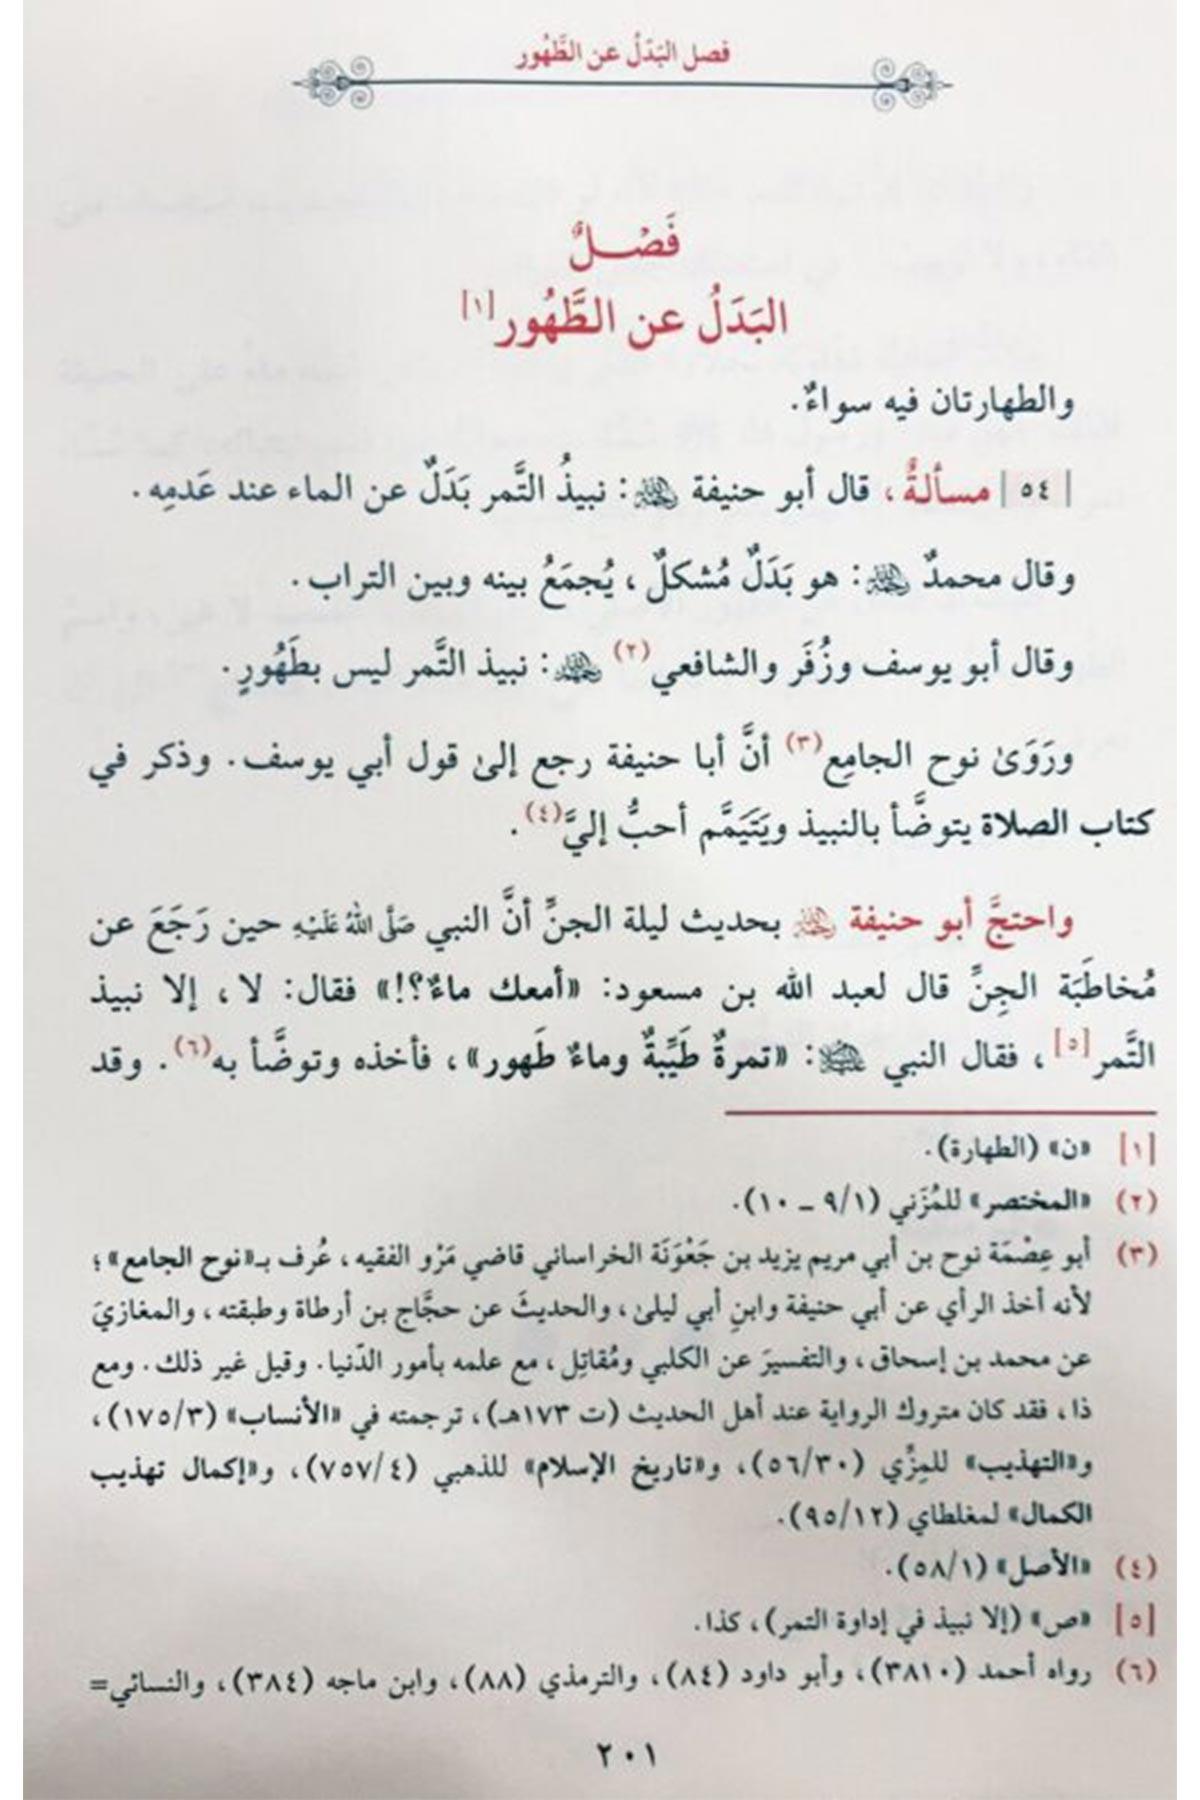 فصل البَدَلُ عن الطَّهُور
فَصْلٌ
البَدَلُ عن الطَّهُور[١]
والطهارتان فيه سواءٌ.
|٥٤| مسألةٌ، قال أبو حنيفة رحمه الله: نبيذُ التَّمر بَدَلٌ عن الماء عند عَدمِه.
وقال محمدٌ رحمه الله: هو بَدَلٌ مُشكلٌ، يُجمَعُ بينه وبين التراب.
وقال أبو يوسف وزُفَر والشافعي(٢) رحمهم الله: نبيذ التَّمر ليس بطَهُورٍ.
ورَوَىٰ نوح الجامِع(٣) أنَّ أبا حنيفة رجع إلىٰ قول أبي يوسف. وذكر في
كتاب الصلاة يتوضَّأ بالنبيذ ويَتَيَمَّم أحبُّ إليَّ(٤).
واحتجَّ أبو حنيفة رحمه الله بحديث ليلة الجنِّ أنَّ النبي صَلَّى اللهُ عَلَيْهِ حين رَجَعَ عن
مُخاطَبَة الجِنِّ قال لعبد الله بن مسعود: «أمعك ماءٌ؟!» فقال: لا، إلا نبيذ
التَّمر[٥]، فقال النبي عليه السلام: «تمرةٌ طَيِّبةٌ وماءٌ طَهور»، فأخذه وتوضَّأ به(٦). وقد
[١] «ن» (الطهارة).
(٢) «المختصر» للمُزَني (٩/١ - ١٠).
(٣) أبو عِصْمَة نوح بن أبي مريم يزيد بن جَعْوَنَة الخراساني قاضي مَرْو الفقيه، عُرف بـ«نوح الجامع»؛
لأنه أخذ الرأي عن أبي حنيفة وابنِ أبي ليلىٰ، والحديثَ عن حجَّاج بن أرطاة وطبقته، والمغازيَ
عن محمد بن إسحاق، والتفسيرَ عن الكلبي ومُقاتِل، مع علمه بأمور الدّنيا. وقيل غير ذلك. ومع
ذا، فقد كان متروك الرواية عند أهل الحديث (ت ١٧٣هـ)، ترجمته في «الأنساب» (١٧٥/٣)،
و«التهذيب» للمِزِّي (٥٦/٣٠)، و«تاريخ الإسلام» للذهبي (٧٥٧/٤)، و«إكمال تهذيب
الكمال» لمغلطاي (٩٥/١٢).
(٤) «الأصل» (٥٨/١).
[٥] «ص» (إلا نبيذ في إداوة التمر)، كذا.
(٦) رواه أحمد (٣٨١٠)، وأبو داود (٨٤)، والترمذي (٨٨)، وابن ماجه (٣٨٤)، والنسائي=
٢٠١